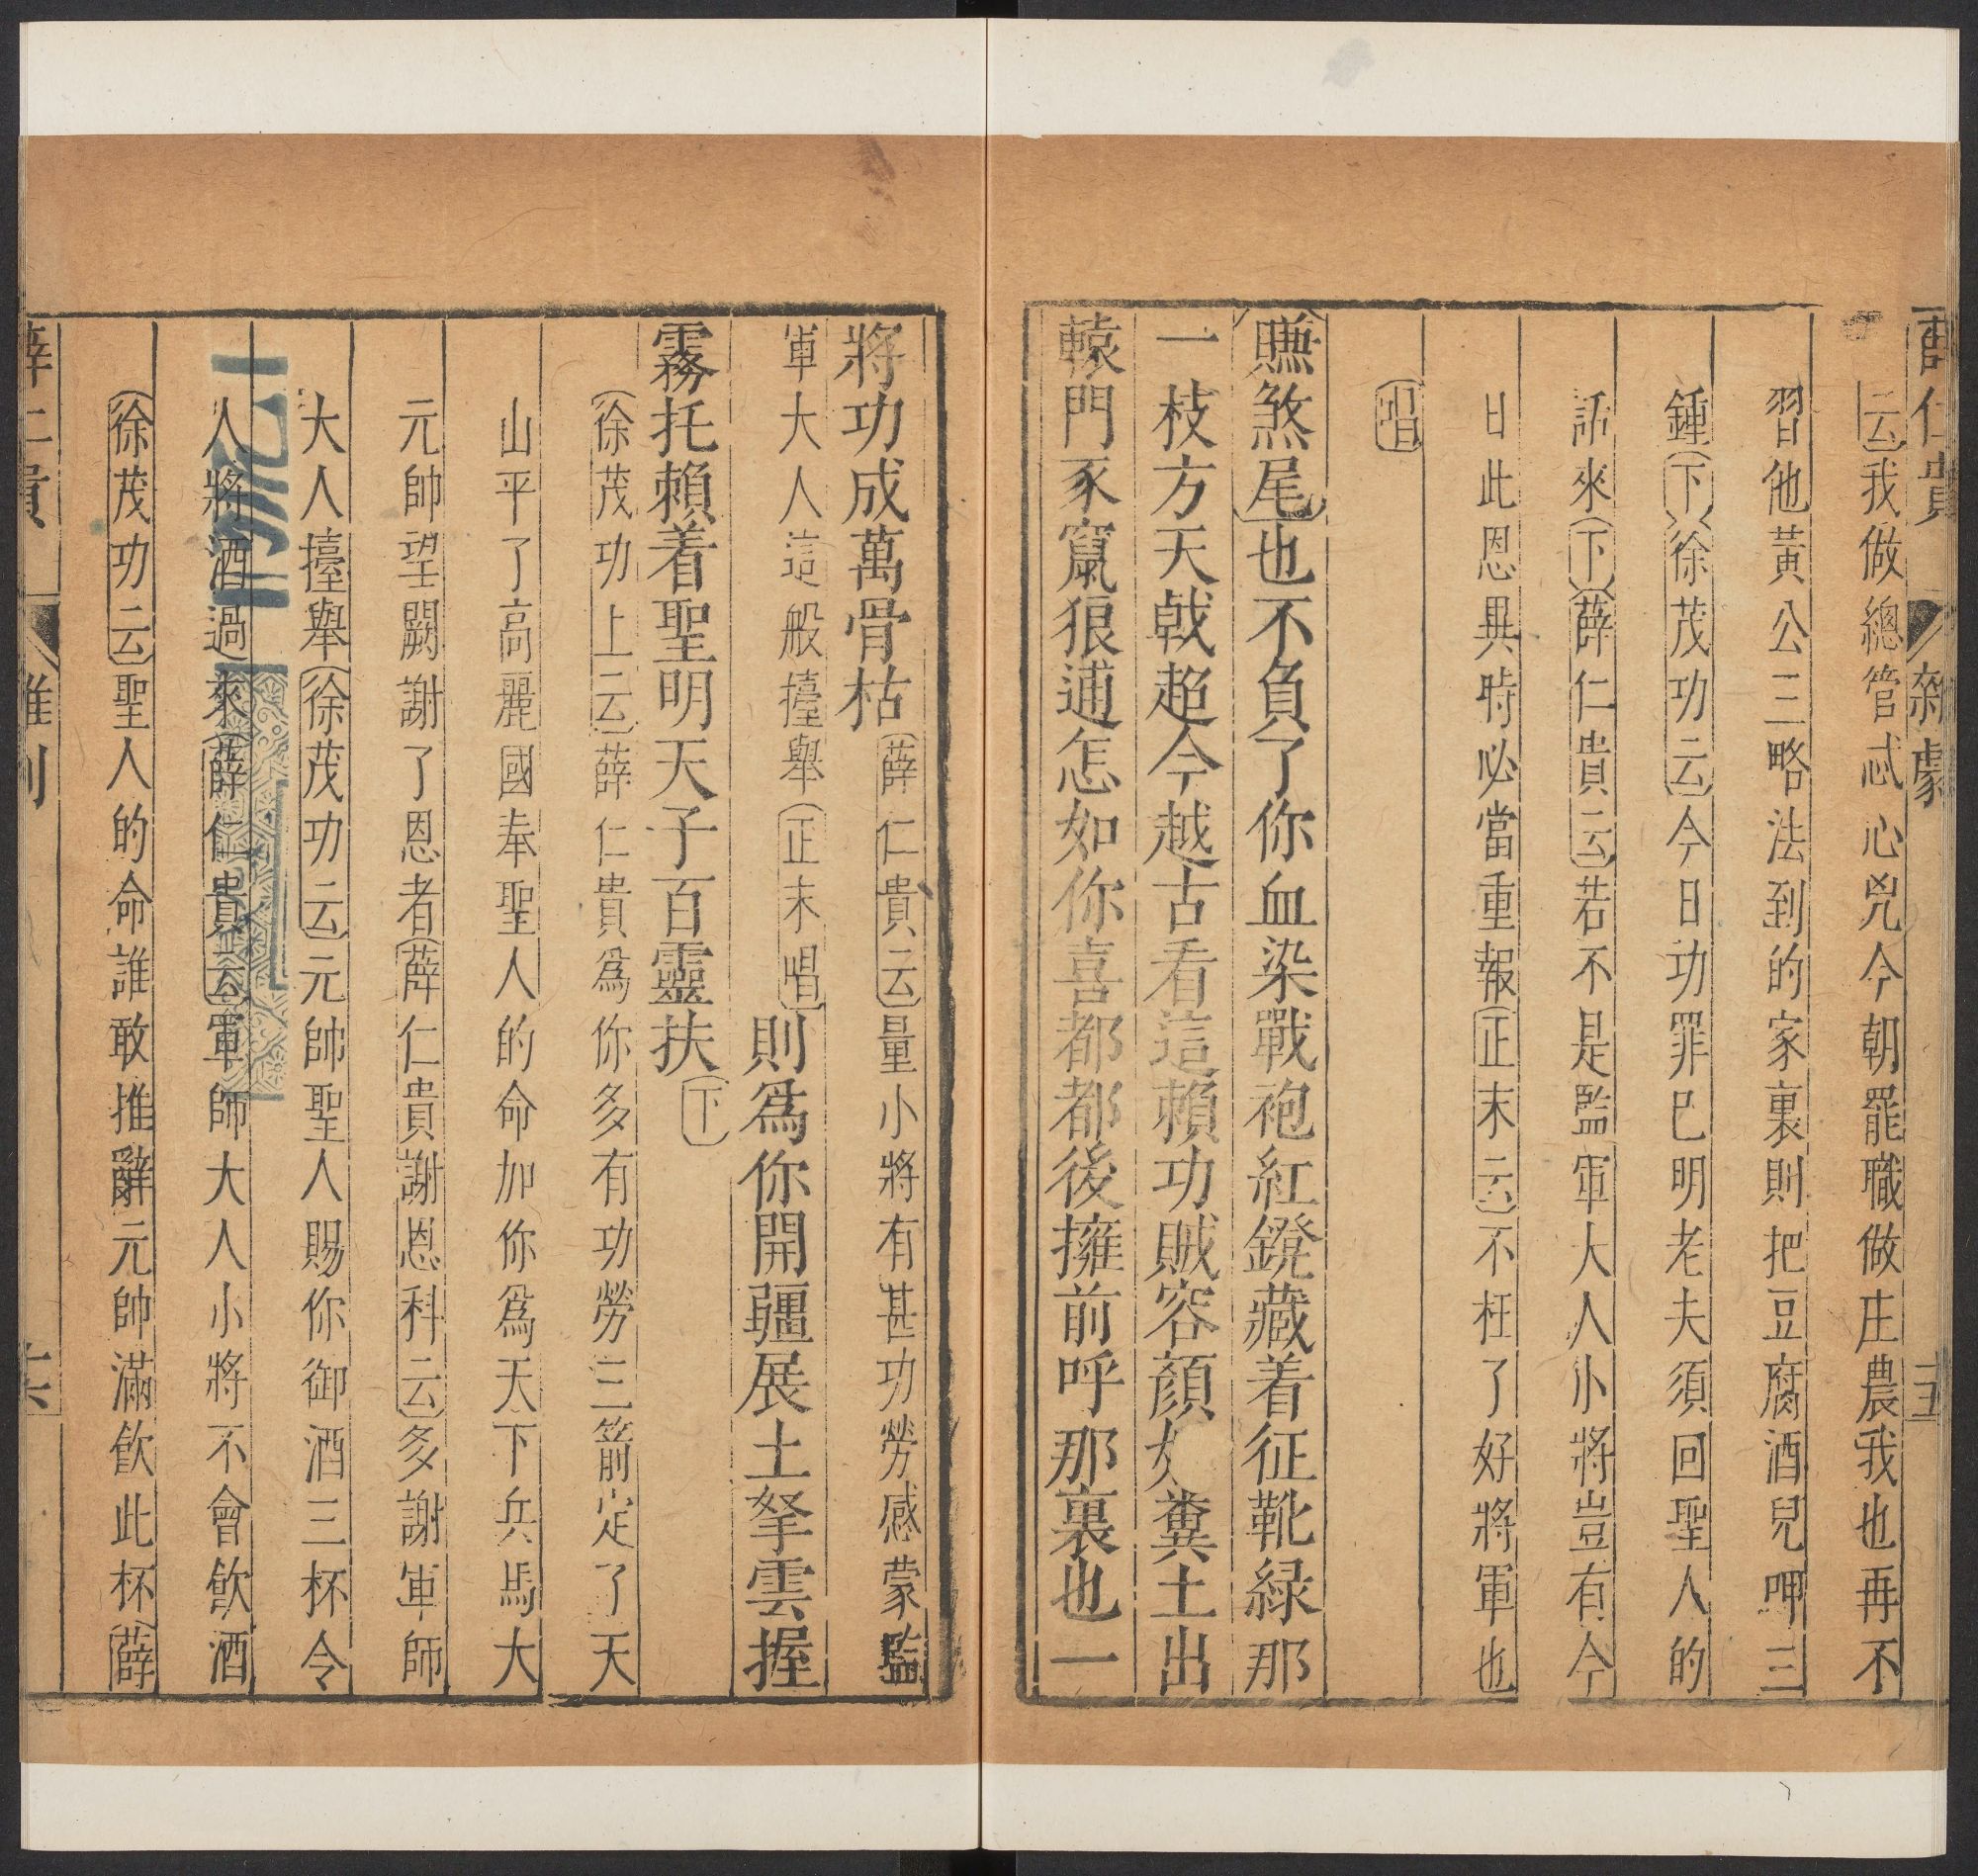 云我做總管忒心兇今朝罷職做庄農我也再不
習他黃公三略法到的家裏則把豆腐酒兒呷三
鍾下徐茂功云今日功罪已明老夫須回聖人的
話來下薛仁貴云若不是監軍大人小將豈有今
日此恩異時必當重報正末云不枉了好將軍也
唱
賺煞尾也不負了你血染戰袍紅鐙藏着征靴緑那
一枝方天戟超今越古看這賴功賊容顏糞土出
轅門豕竄狼逋怎如你喜都都後擁前呼那裏也一
將功成萬骨枯薛仁貴云量小將有甚功勞感蒙監
軍大人這般擡舉正末唱則爲你開疆展土拏雲握
霧托賴着聖明天子百靈扶下
徐茂功上云薛仁貴爲你多有功勞三箭定了天
山平了高麗國奉聖人的命加你爲天下兵馬大
元帥望闕謝了恩者薛仁貴謝恩科云多謝軍師
大人擡舉徐茂功云元帥聖人賜你御酒三杯令
人將酒過來薛仁貴云軍師大人小將不會飲酒
徐茂功云聖人的命誰敢推辭元帥滿飲此杯薛